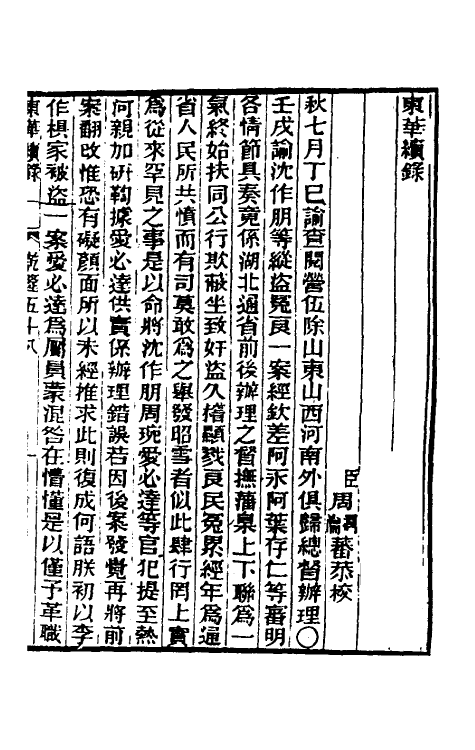 東華續錄
臣周潤蕃恭校
秋七月丁巳諭查閱營伍除山東山西河南外俱歸總督辦理〇
壬戌諭沈作朋等縱盜冤良一案經欽差阿永阿葉存仁等審明
各情節具奏竟係湖北通省前後辦理之督撫藩臬上下聯為一
氣終始扶同公行欺蔽坐致奸盜久稽顯戮良民冤累經年為通
省人民所共憤而有司莫敢為之舉發昭雪者似此肆行罔上實
為從來罕見之事是以命將沈作朋周琬愛必達等官犯提至熱
河親加研鞫據愛必達供實係辦理錯誤若因後案發覺再將前
案翻改惟恐有礙顏面所以未經推求此則復成何語朕初以李
作椇家被盜一案愛必達為屬員蒙混咎在懵懂是以僅予革職
東華續錄 乾隆五十八